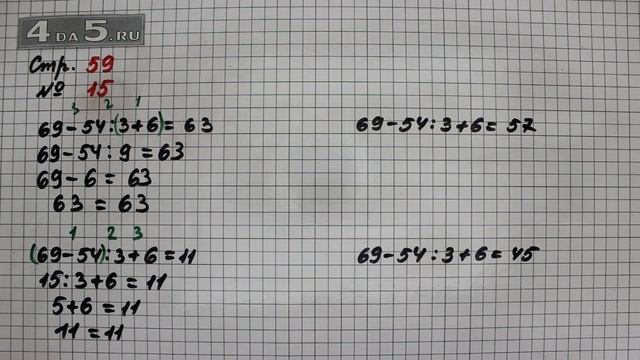 4 DA 5.RU
Стр. 59
№ 15
3 2 1
69-54:(3+6)=63
69-54:9=63
69-6=63
63=63
1 2 3
(69-54):3+6=11
15:3+6=11
5+6=11
11=11
69-54:3+6=57
69-54:3+6=45